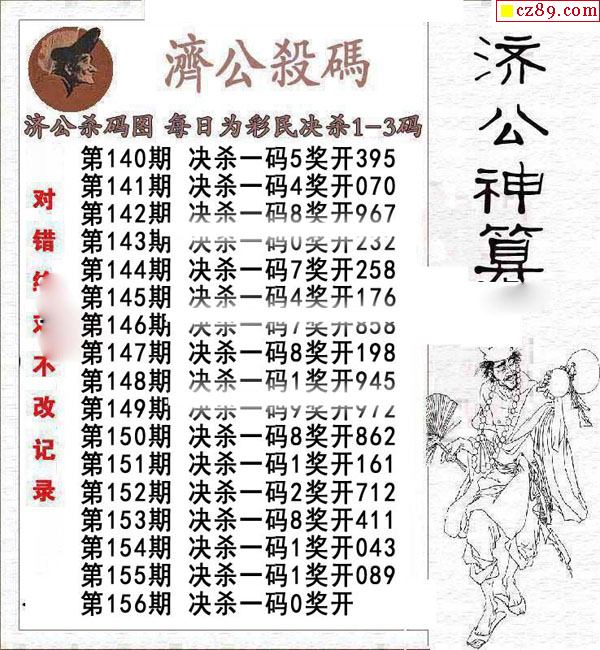 cz89.com
濟公殺碼
济公杀码图 每日为彩民决杀1-3码
第140期 决杀一码5奖开395
第141期 决杀一码4奖开070
第142期 决杀一码8奖开967
第143期 决杀一码0奖开232
第144期 决杀一码7奖开258
第145期 决杀一码4奖开176
第146期 决杀一码7奖开858
第147期 决杀一码8奖开198
第148期 决杀一码1奖开945
第149期 决杀一码9奖开972
第150期 决杀一码8奖开862
第151期 决杀一码1奖开161
第152期 决杀一码2奖开712
第153期 决杀一码8奖开411
第154期 决杀一码1奖开043
第155期 决杀一码1奖开089
第156期 决杀一码0奖开
对错不改记录
济公神算